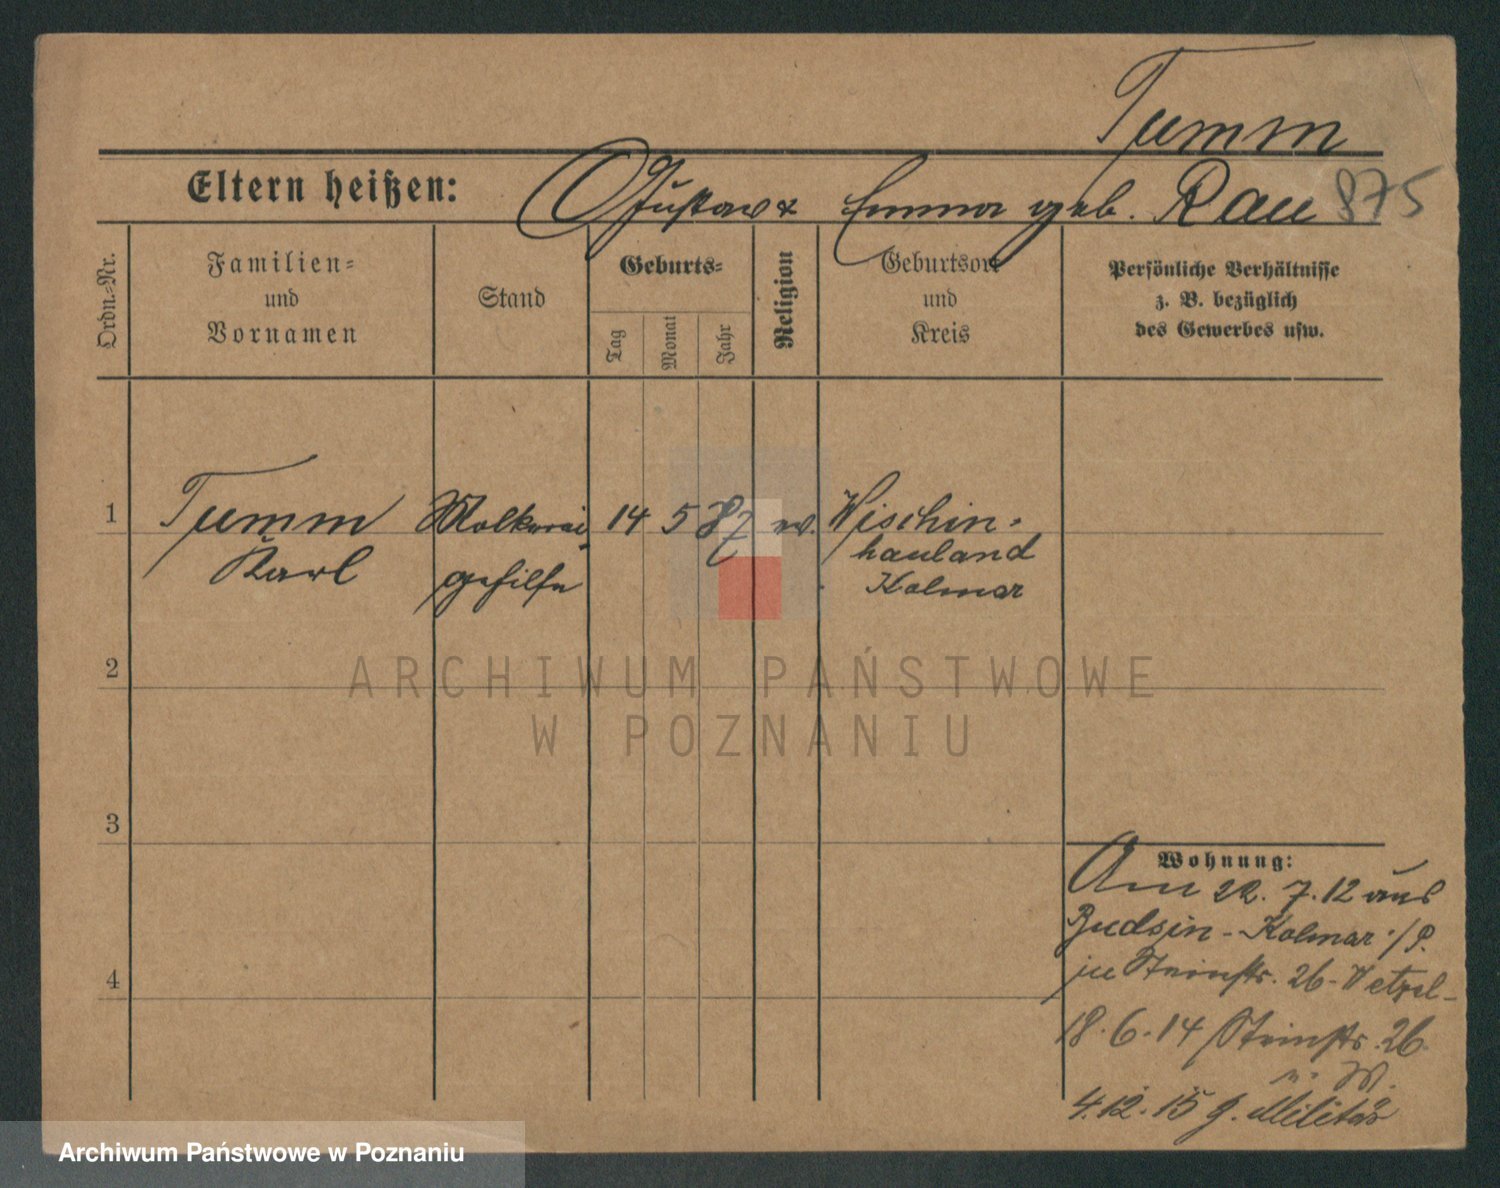 Tumm
Eltern heißen: Gustav & Emma geb. Rau 875
Ordn.-Nr.
Familien-
und
Vornamen
Stand
Geburts-
Tag
Monat
Jahr
Religion
Geburtsort
und
Kreis
Persönliche Verhältnisse
z. B. bezüglich
des Gewerbes usw.
1 Tumm Molkerei 14 5 87 ev. Wischin-
Karl gehilfe hauland
Kolmar
2
3
4
Wohnung:
Am 22. 7. 12 aus
Budsin - Kolmar i/P.
in Steinstr. 26 - Wetzel -
18. 6. 14 Steinstr. 26
4. 12. 15 z. Militär
ARCHIWUM PAŃSTWOWE
W POZNANIU
Archiwum Państwowe w Poznaniu